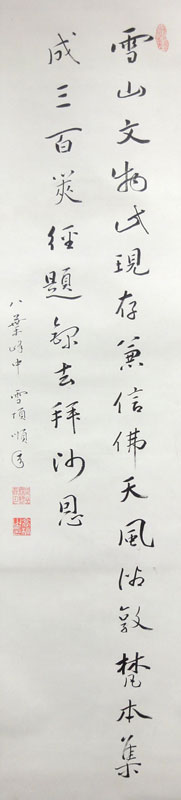 雪山文物此現存兼信佛天風沙敦梵本集
成三百莢經題錄去拜沙恩
八葉峰中 雪頂